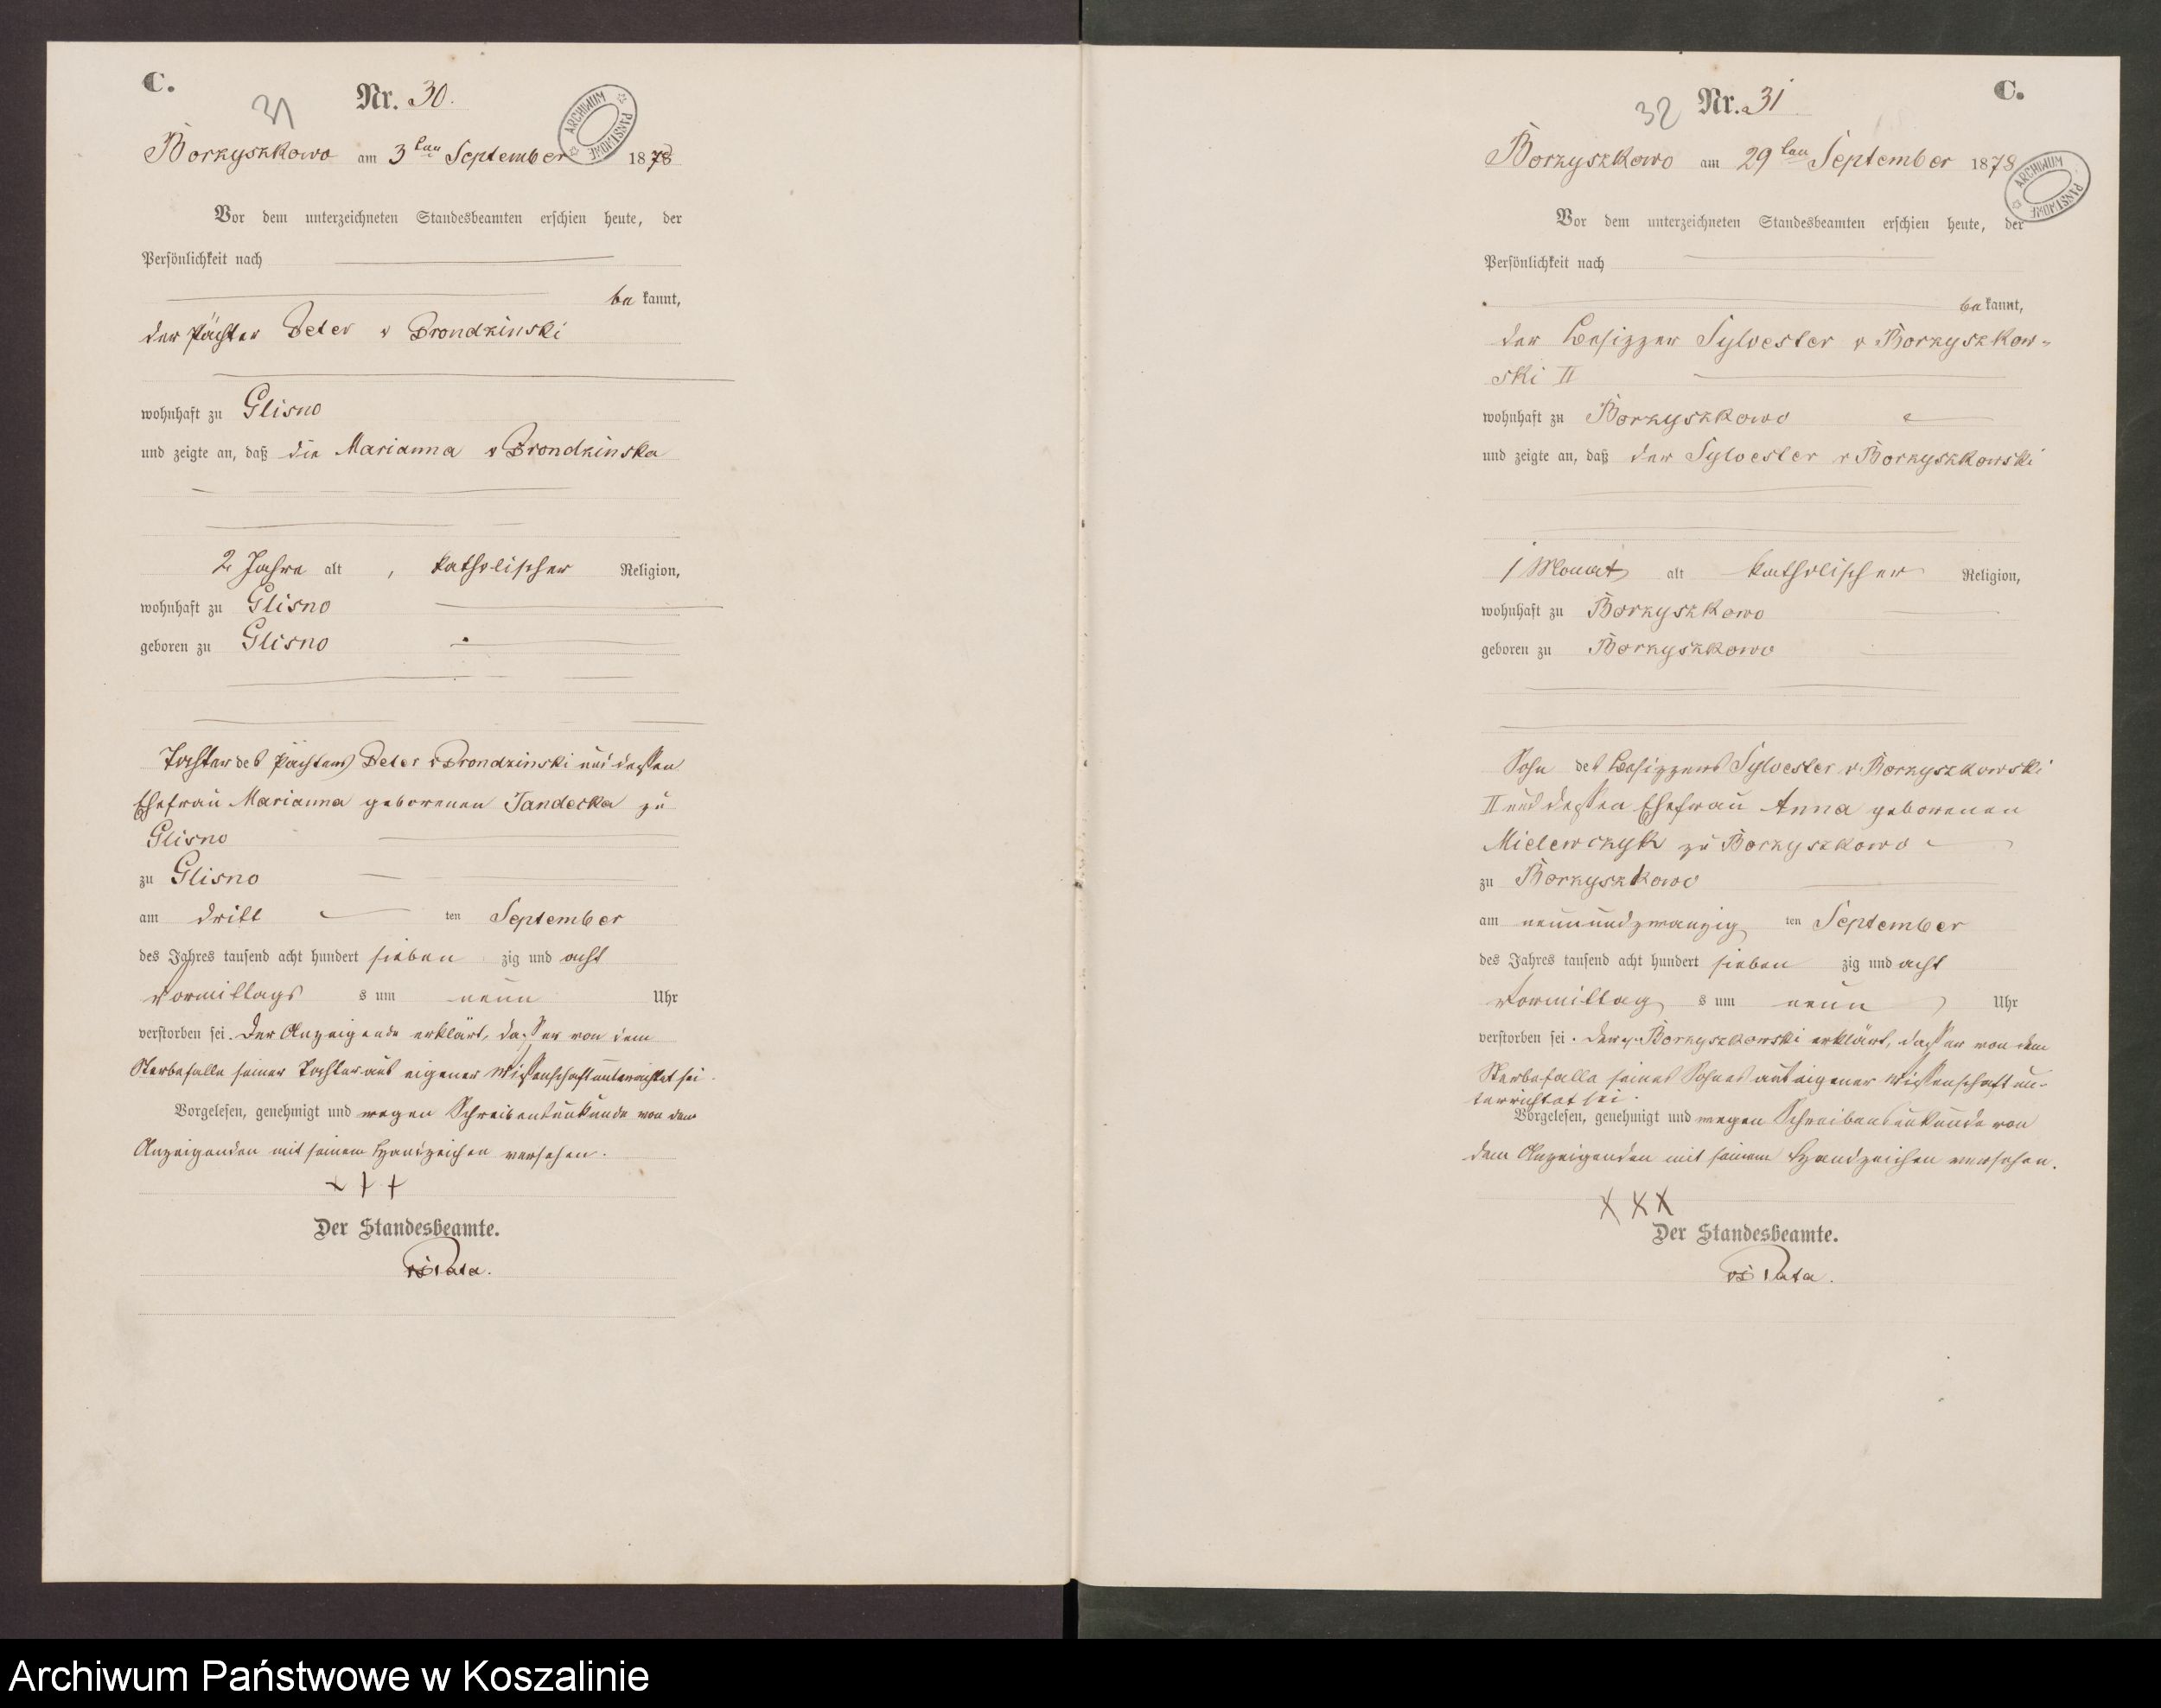 C.
31
Nr. 30.
ARCHIWUM PAŃSTWOWE
Borzyszkowo am 3ten September 1878
Vor dem unterzeichneten Standesbeamten erschien heute, der
Persönlichkeit nach
be kannt,
der Pächter Peter v Prondzinski
wohnhaft zu Glisno
und zeigte an, daß die Marianna v Prondzinska
2 Jahre alt, katholischer Religion,
wohnhaft zu Glisno
geboren zu Glisno
Tochter des Pächters Peter v Prondzinski und dessen
Ehefrau Marianna geborenen Jandecka zu
Glisno
zu Glisno
am dritt ten September
des Jahres tausend acht hundert sieben zig und acht
Vormittags s um neun Uhr
verstorben sei. Der Anzeigende erklärt, dass er von dem
Sterbefalle seiner Tochter aus eigener Wissenschaft unterrichtet sei.
Vorgelesen, genehmigt und wegen Schreibensunkunde von dem
Anzeigenden mit seinem Handzeichen versehen.
+ + +
Der Standesbeamte.
C.
32
Nr. 31
ARCHIWUM PAŃSTWOWE
Borzyszkowo am 29ten September 1878
Vor dem unterzeichneten Standesbeamten erschien heute, der
Persönlichkeit nach
be kannt,
der Besitzer Sylvester v Borzyszkow-
ski II
wohnhaft zu Borzyszkowo
und zeigte an, daß der Sylvester v Borzyszkowski
1 Monat alt katholischer Religion,
wohnhaft zu Borzyszkowo
geboren zu Borzyszkowo
Sohn des Besitzers Sylvester v Borzyszkowski
II und dessen Ehefrau Anna geborenen
Mielewczyk zu Borzyszkowo
zu Borzyszkowo
am neunundzwanzig ten September
des Jahres tausend acht hundert sieben zig und acht
Vormittag s um neun Uhr
verstorben sei. Der v. Borzyszkowski erklärt, dass er von dem
Sterbefalle seines Sohnes aus eigener Wissenschaft un-
terrichtet sei.
Vorgelesen, genehmigt und wegen Schreibensunkunde von
dem Anzeigenden mit seinem Handzeichen versehen.
X X X
Der Standesbeamte.
Archiwum Państwowe w Koszalinie